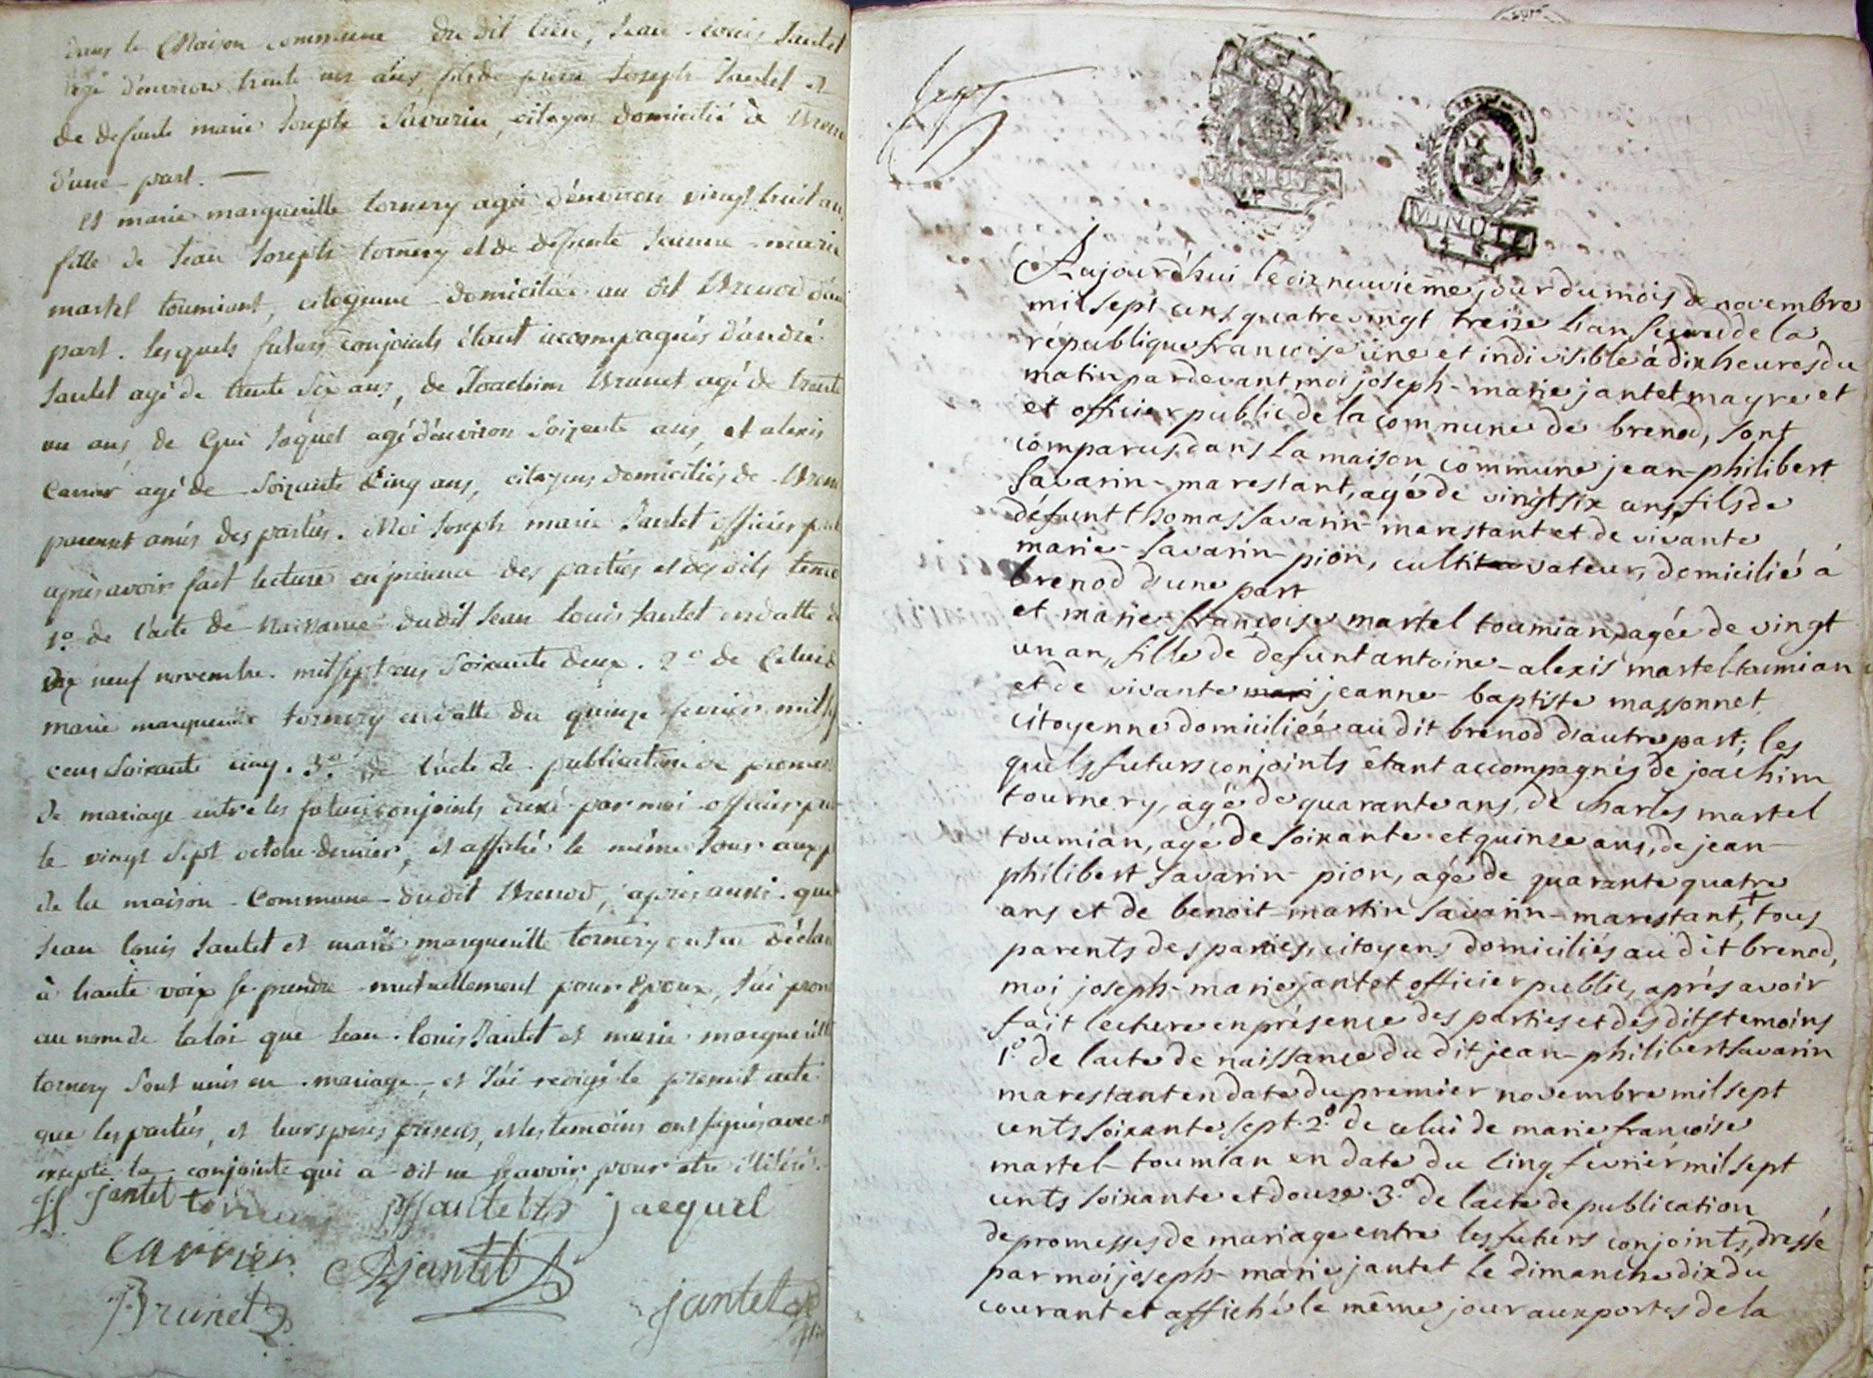 dans la Maison commune du dit lieu, Jean Louis Jantet
agé d'environ trente un ans, fils de pierre Joseph Jantet et
de defunte marie Josephe Savarin, citoyen domicilié à Breno
d'une part. —
et marie margueritte tornery agée d'environ vingt huit ans
fille de Jean Joseph tornery et de defunte Jeanne marie
martel toumiant, citoyenne domiciliée au dit Brenod d'au
part. lesquels futurs conjoints étant accompagnés d'andré
Jantet agé de trente six ans, de Joachim Brunet agé de trente
un ans, de Gui Jaquet agé d'environ soixante ans, et alexis
Carrier agé de soixante cinq ans, citoyens domiciliés de Breno
parens et amis des parties. Moi Joseph marie Jantet officier pub
après avoir fait lecture en presence des parties et des dits temo
1.º de l'acte de Naissance dudit Jean Louis Jantet en datte d
dix neuf novembre mil sept cens soixante deux. 2.º de celui d
marie margueritte tornery en datte du quinze fevrier mil sep
cens soixante cinq. 3.º de l'acte de publication de promes
de mariage entre les futurs conjoints dressé par moi officier pu
le vingt sept octobre dernier, et affiché le même Jour aux p
de la maison Commune dudit Brenod, après aussi que
Jean Louis Jantet et marie margueritte tornery ont déclar
à haute voix se prendre mutuellement pour Epoux, J'ai pron
au nom de la loi que Jean Louis Jantet et marie margueritt
tornery sont unis en mariage, et J'ai redigé le present acte
que les parties, et leurs peres presens, et les temoins ont signés avec m
excepté la conjointe qui a dit ne sçavoir pour etre illiteré.
jantet tornery jantet jacquel
carrier jantet
Brunet jantet
MINUTE
MINUTE
Aujourd'hui le diz neuvieme jour du mois de novembre
mil sept cens quatre vingt treize l'an second de la
république françoise une et indivisible à dix heures du
matin pardevant moi joseph-marie jantet mayre et
et officier public de la commune de brenod, sont
comparus dans la maison commune jean-philibert
savarin-marestant, agé de vingt six ans, fils de
défunt thomas savarin-marestant et de vivante
marie-savarin-pion, cultivateur, domicilié à
brenod d'une part
et marie-françoise martel toumian, agée de vingt
un an, fille de defunt antoine-alexis martel toumian
et de vivante mari jeanne-baptiste massonnet
citoyenne domiciliée au dit brenod d'autre part; les
quels futurs conjoints étant accompagnés de joachim
tournery, agé de quarante ans, de charles martel
toumian, agé de soixante et quinze ans, de jean-
philibert savarin-pion, agé de quarante quatre
ans et de benoit-martin savarin-marestant, + tous
parents des parties, citoyens domiciliés au dit brenod,
moi joseph-marie jantet officier public, après avoir
fait lecture en présence des parties et des dits temoins
1.º de l'acte de naissance du dit jean-philibert savarin
marestant en date du premier novembre mil sept
cents soixante sept. 2.º de celui de marie françoise
martel-toumian en date du cinq fevrier mil sept
cents soixante et douze. 3.º de l'acte de publication
de promesses de mariage entre les futurs conjoints, dressé
par moi joseph-marie jantet le dimanche dix du
courant et affiché le même jour aux portes de la